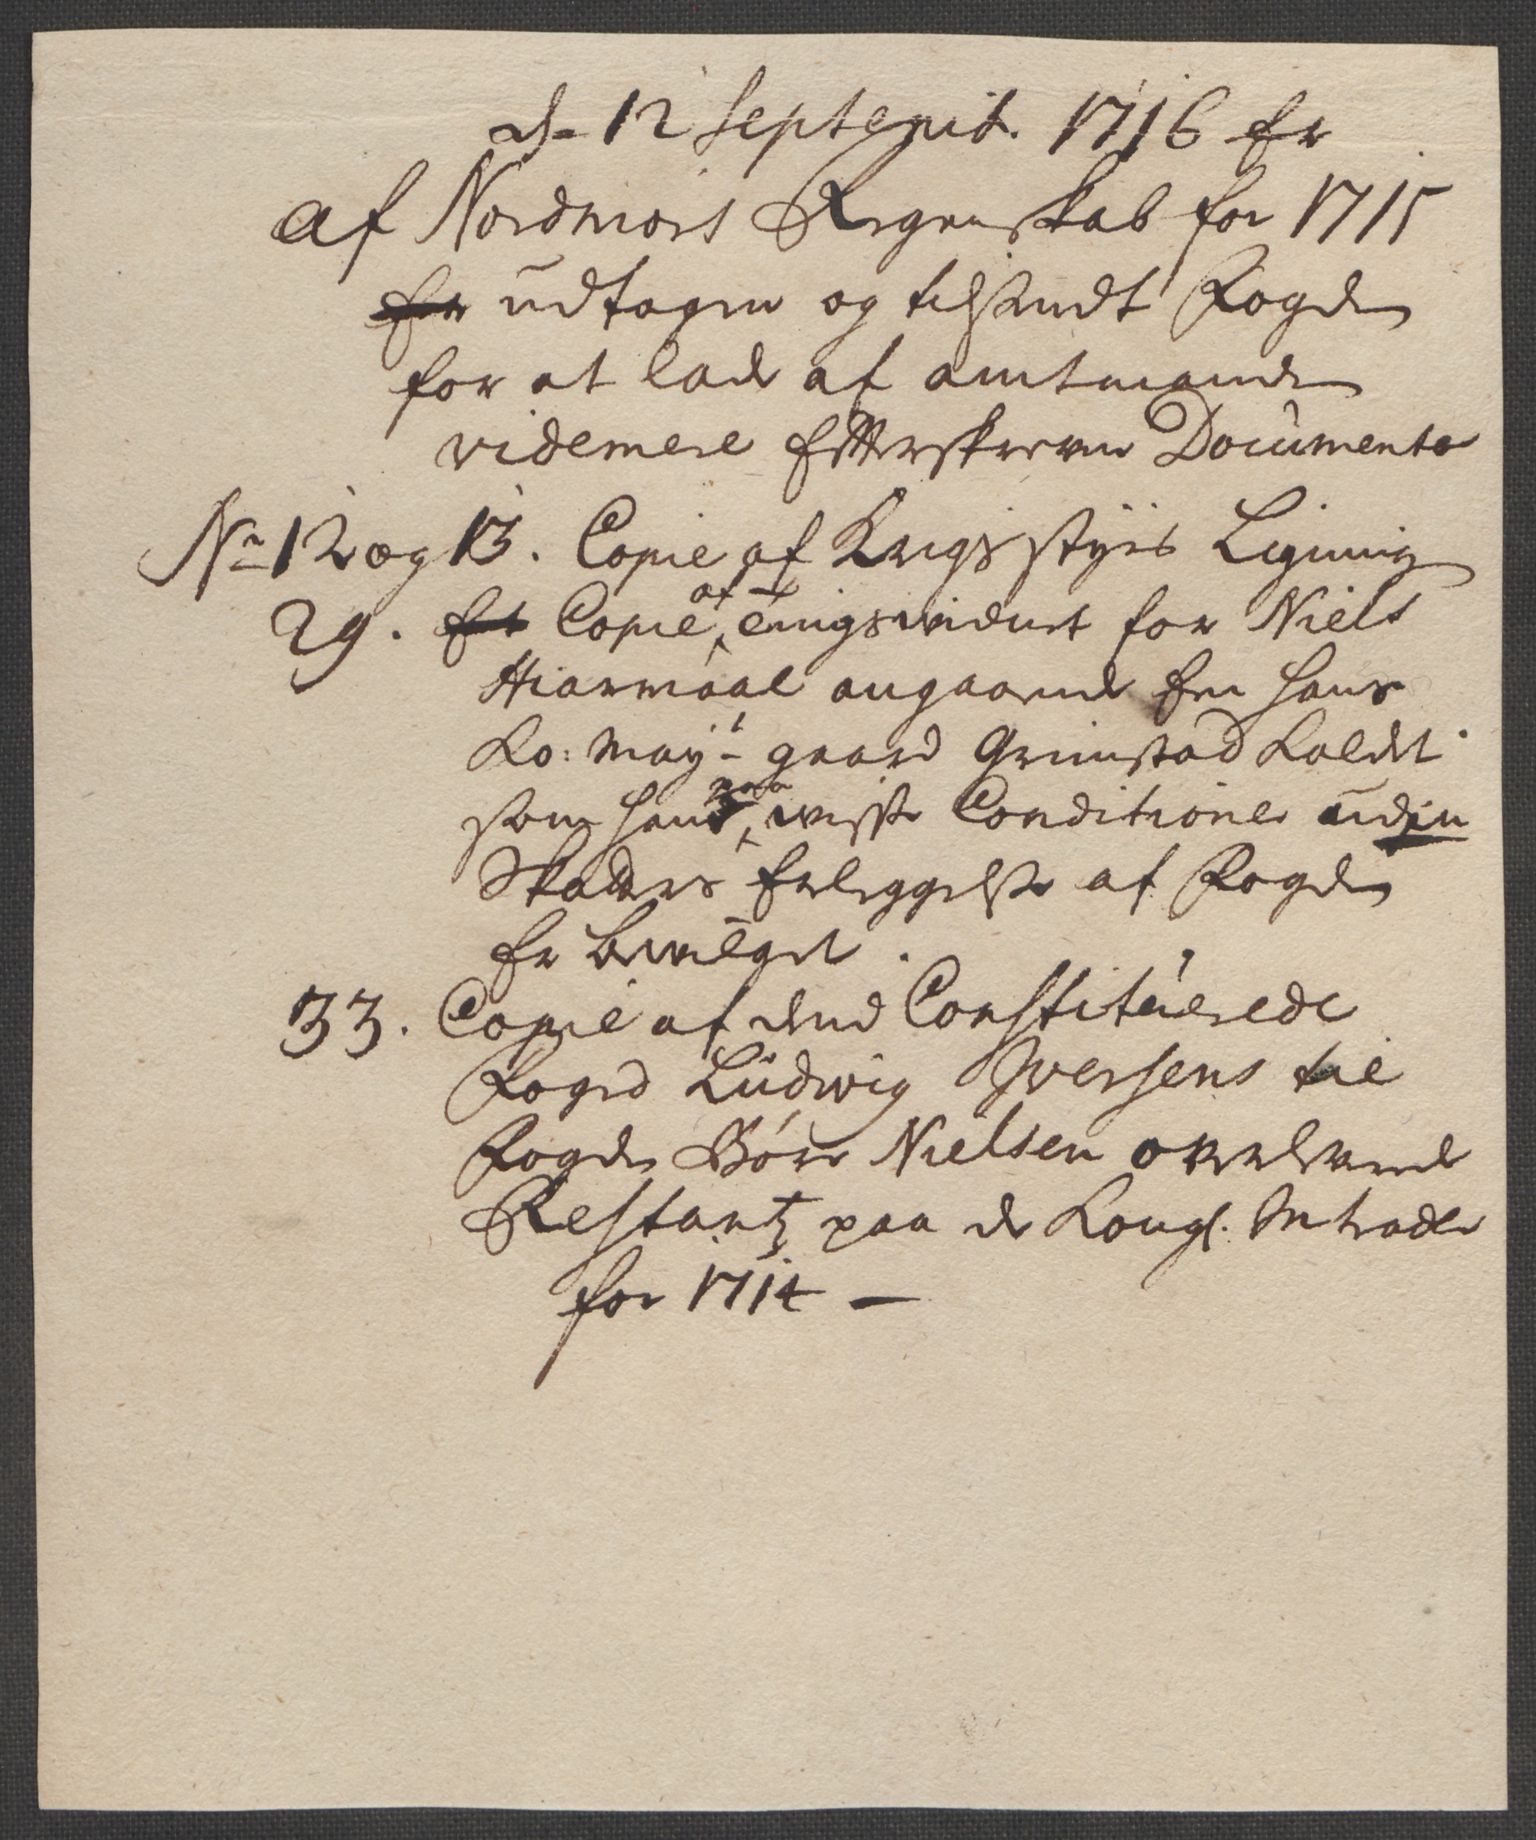 d. 12 Septemb. 1716 Er
af Nordmørs Regenskab for 1715
udtagen og tilsendt Fogden
for at lade af amtmanden
videmere Efterskrevne Documenter
No 12 og 13. Copie af Krigsstyrs Ligning
29. Copie af tingsvidnet for Niels
Hiarmaal angaaende En hans
Ko: Mayts gaard Grimstad Kaldet
som hand paa visse Conditioner uden
Skatters Erleggelse af Fogden
Er bevilget.
33. Copie af dend Constituerede
Foged Ludwig Iversens til
Fogden Børe Nielsen overleverede
Restantz paa de Kongl. Intrader
for 1714 —